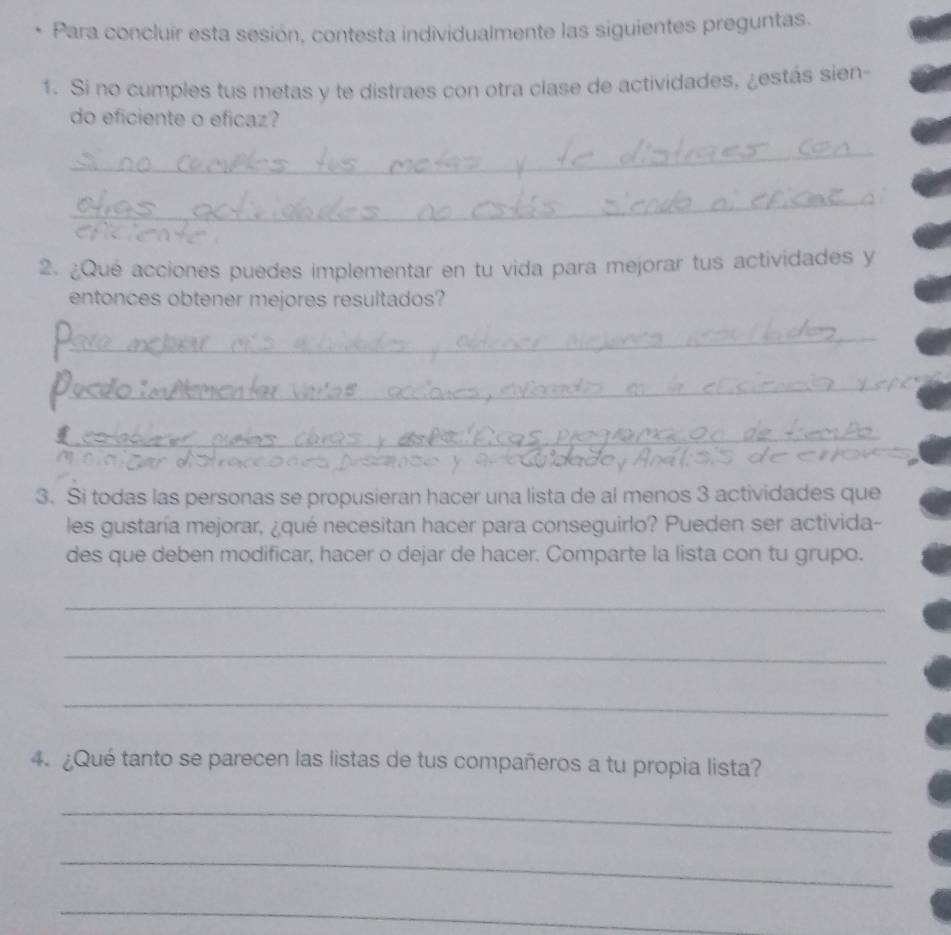 • Para concluir esta sesión, contesta individualmente las siguientes preguntas.
1. Si no cumples tus metas y te distraes con otra clase de actividades, ¿estás sien-
do eficiente o eficaz?
Si no cumples tus metas y te distraes con
otras actividades no estás siendo ni eficaz ni
eficiente.
2. ¿Qué acciones puedes implementar en tu vida para mejorar tus actividades y
entonces obtener mejores resultados?
Para mejorar mis actividades, y obtener mejores resultados,
Puedo implementar varias acciones, en la eficiencia
establecer metas claras y específicas, programacon de tiempo
minimizar distracciones Descanso y autocuidado, y Análisis de errores,
3. Si todas las personas se propusieran hacer una lista de al menos 3 actividades que
les gustaría mejorar, ¿qué necesitan hacer para conseguirlo? Pueden ser activida-
des que deben modificar, hacer o dejar de hacer. Comparte la lista con tu grupo.
4. ¿Qué tanto se parecen las listas de tus compañeros a tu propia lista?